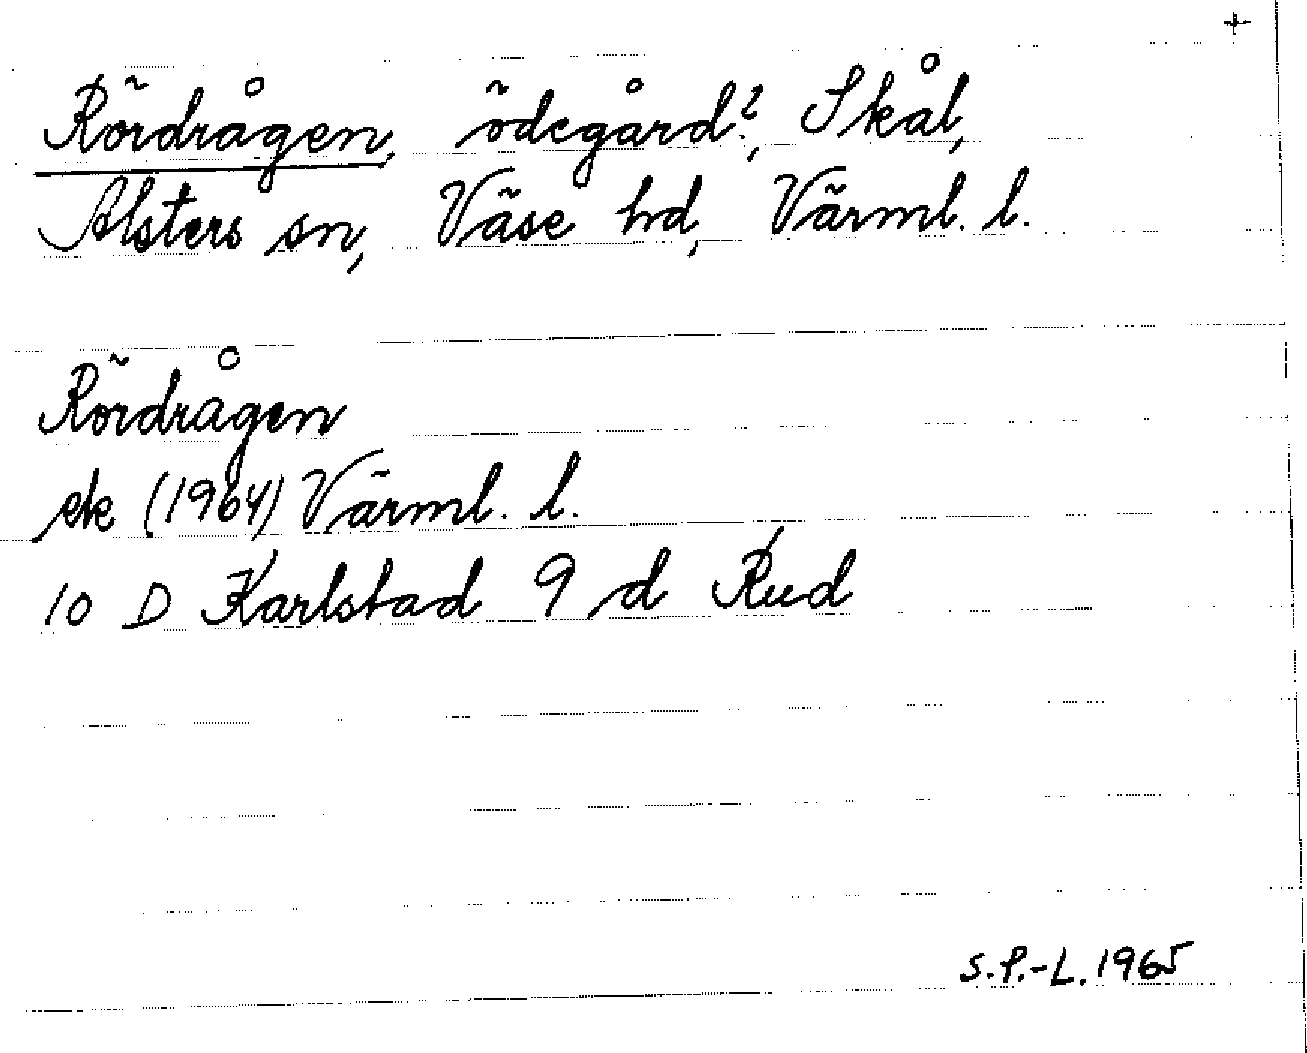 +
Rördrågen, ödegård?, Skål,
Alsters sn, Väse hd, Värml. l.
Rördrågen
ek (1964) Värml. l.
10 D Karlstad 9 d Rud
S.P.-L. 1965